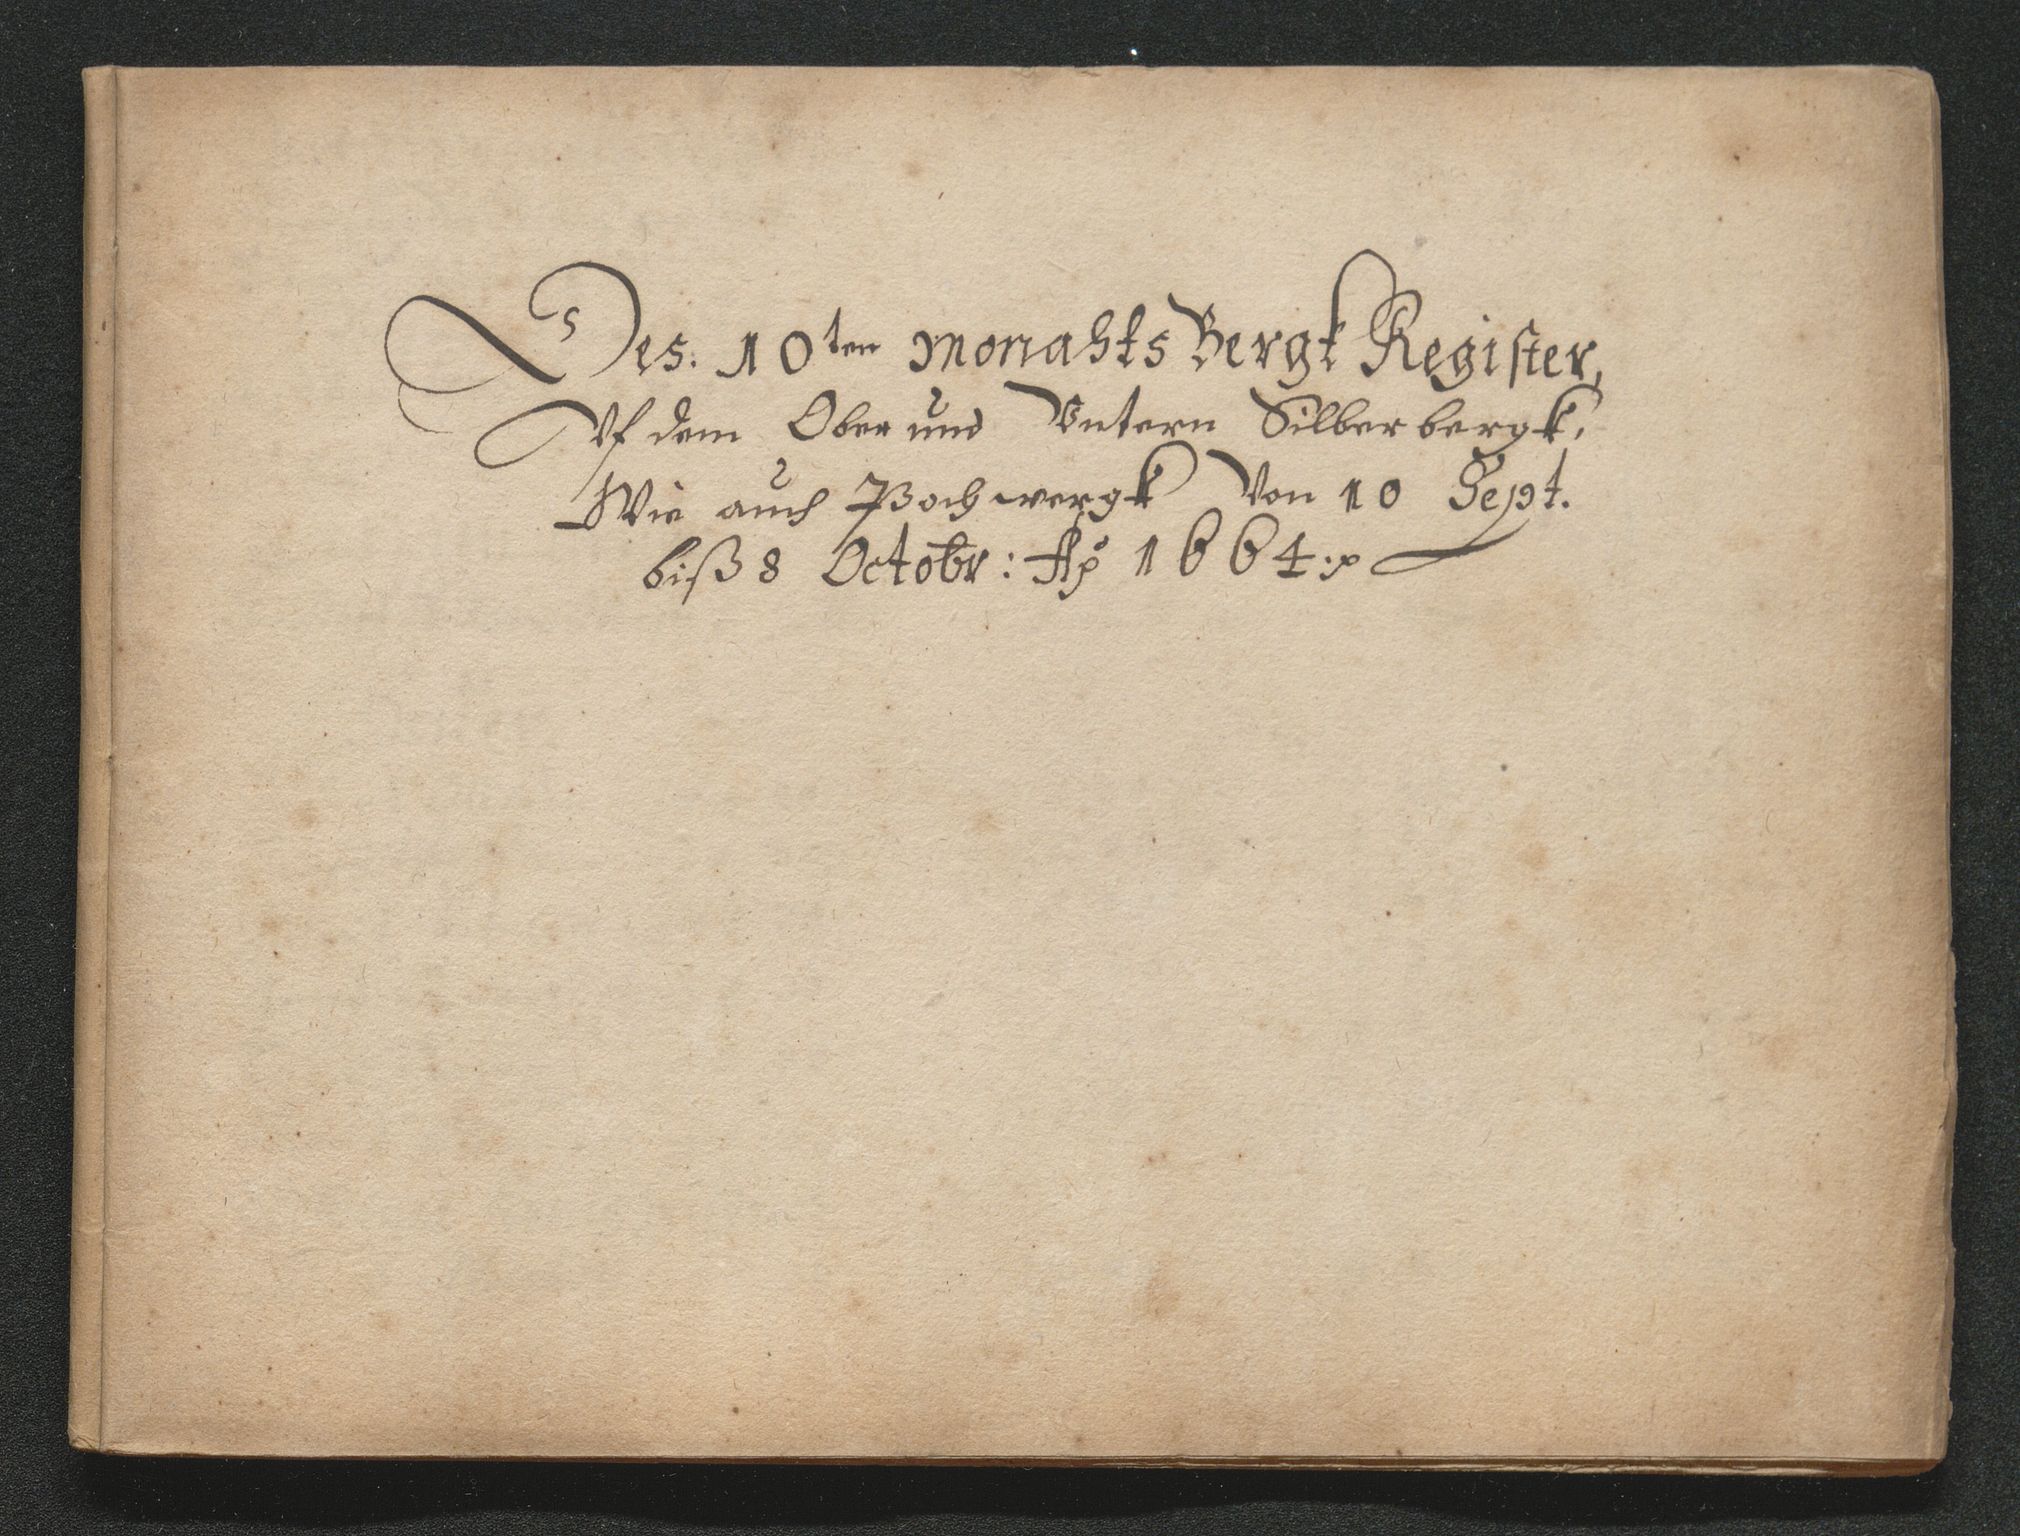 Des. 10ten Monahts Bergk Register,
Vf dem Ober und Vntern Silberbergk,
Wie auch Pochwergk Von 10 Sept.
biß 8 Octobr: Aō 1664.